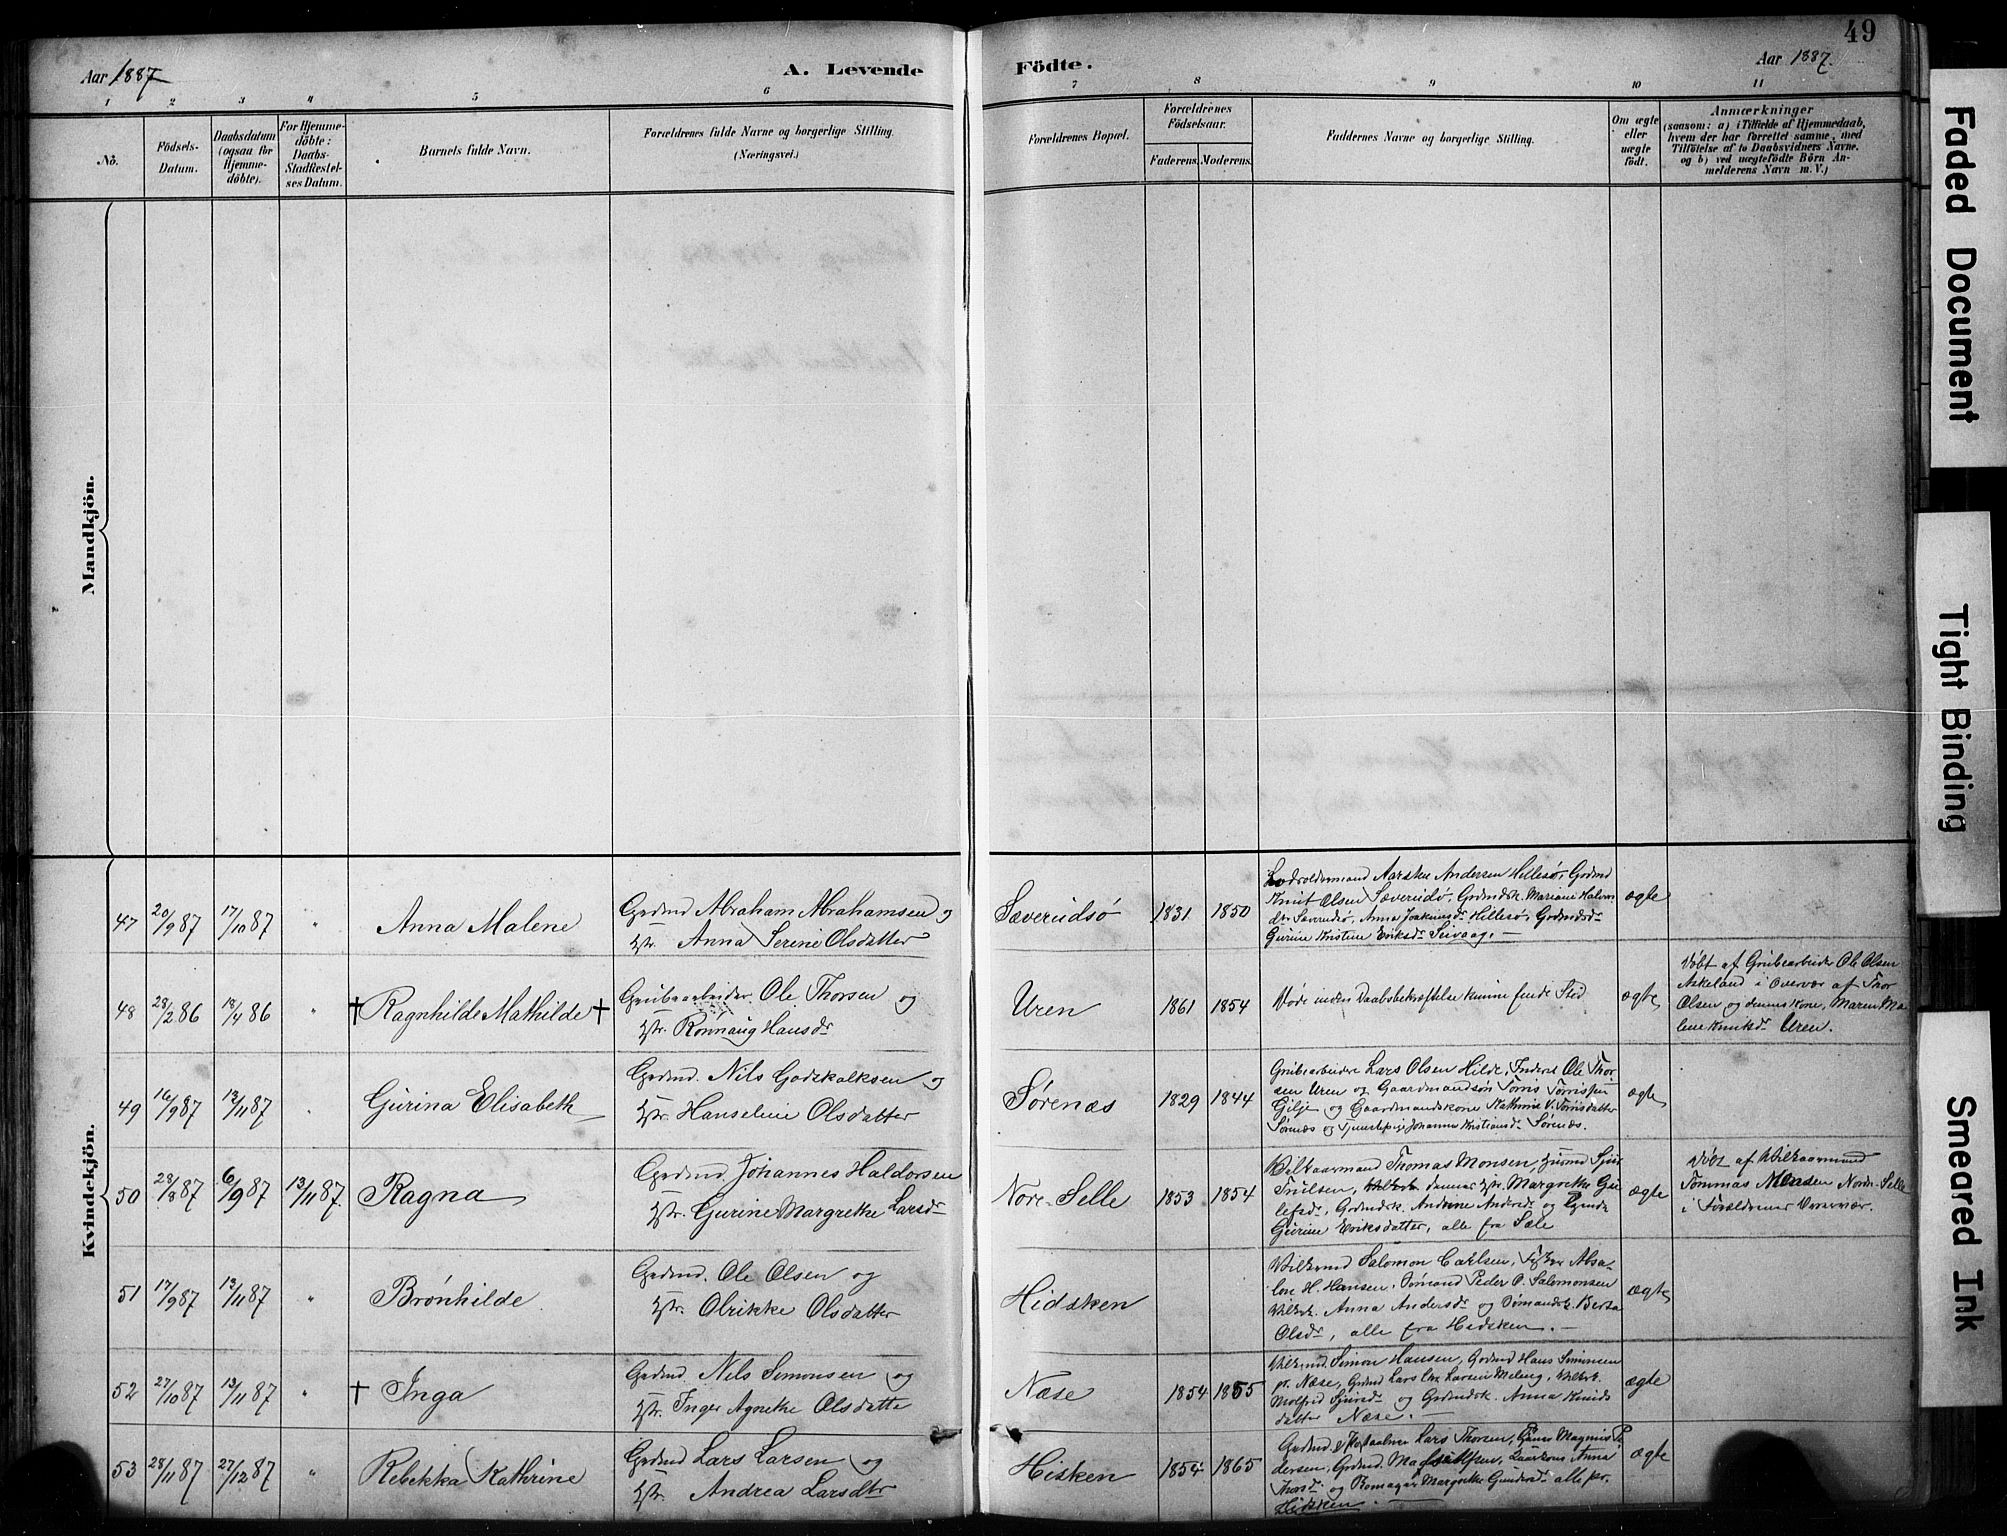 49
Aar 1887
A. Levende
Födte.
Aar 1887.
1 2 3 4 5 6 7 8 9 10 11
No.
Födsels-
Datum.
Daabsdatum
(ogsaa for
Hjemme-
döbte).
For Hjemme-
döbte:
Daabs-
Stadfæstel-
ses Datum.
Barnets fulde Navn.
Forældrenes fulde Navne og borgerlige Stilling.
(Næringsvei.)
Forældrenes Bopæl.
Forældrenes
Födselsaar.
Faderens. Moderens.
Faddernes Navne og borgerlige Stilling.
Om ægte
eller
uægte
födt.
Anmærkninger
(saasom: a) i Tilfælde af Hjemmedaab,
hvem der har forrettet samme, med
Tilföielse af to Daabsvidners Navne.
og b) ved uægtefödte Börn An-
melderens Navn m. V.)
Mandkjön.
Kvindekjön.
47 20/9 87 17/10 87 " Anna Malene
Grdmd Abraham Abrahamsen og
Hstr. Anna Serine Olsdatter
Sæverudsø 1831 1850
Aarsku Andersen Hillesø, Grdmd
Knut Olsen Sæverudsø, Grdmdsk. Mariane Halvors
dtr Sæverudsø, Anna Joakimsdr Hillesø, Grdmdsdr
Gurine Kristine Eriksdr Seivaag. —
ægte
48 28/2 86 18/4 86 " † Ragnhilde Mathilde †
Grubearbeider. Ole Thorsen og
Hstr. Rønnaug Hansdr
Uren 1861 1854
Døde inden Daabsbekræftelse kunne finde Sted
ægte
Døbt af Grubearbeider Ole Olsen
Askeland i Overvær af Thor
Olsen og dennes Kone, Maren Ma
lene Uren.
49 16/9 87 13/11 87 " Gurina Elisabeth
Grdmd. Nils Godskalksen og
Hstr. Hanseline Olsdatter
Sørenæs 1829 1844
Grubearbeidere Lars Olsen Hilde, Inderst Ole Thor
sen Uren og Gaardmandsøn Tørris Tørrissen
Gilje og Gaardmandskone Kathrine V. Tørrisdatter
Sørenæs og Tjenestepige Johanna Kristiansdr Sørenæs.
ægte
50 28/8 87 6/9 87 13/11 87. Ragna
Grdmd. Johannes Haldorsen
Hstr. Gurine Margrethe Larsdr
Nore-Selle 1853 1854
Vilkaarmand Thomas Monsen, Husmd Sjur
dennes Hstr. Margrethe Gu
lefsdr, Grdmdsk. Andrine Andrsdr og Pigerne
Gurine Eriksdatter, alle fra Sæle
ægte
Døbt af Vilkaarmand
Tommas Monsen Nordre-Selle
i Forældrenes Overvær.
51 17/9 87 13/11 87 " Brønhilde
Grdmd. Ole Olsen og
Hstr. Olrikke Olsdatter
Hidsken
Vilkrmd Salomon Carlsen, Absa-
lon H. Hansen, Sømand Peder O. Salomonsen
Vilkrk. Anna Andersdr og Sømandsk. Berta
Olsdr, alle fra Hidsken. —
ægte
52 27/10 87 13/11 87 " † Inga
Grdmd. Nils Simonsen og
Hstr. Inger Agnethe Olsdatter
Næse 1854 1855
Vilkrmd. Simon Hansen, Grdmd Hans Simonsen
pr. Næse, Lars Meling, Vilkrk.
Molfrid Sjursdr og Grdmdsk. Anna Knuds
datter Næse. —
ægte
53 28/11 87 27/12 87 " Rebekka Kathrine
Grdmd Lars Larsen og
Hstr. Andrea Larsdtr
Hisken 1854 1865
Grdmd. Lars Thorsen, Magnus Pe
dersen, Grdmd. Anna
Thorsdr og Margrethe Gundersdr alle pr.
Hidsken. —
ægte
Faded Document
Tight Binding
Smeared Ink